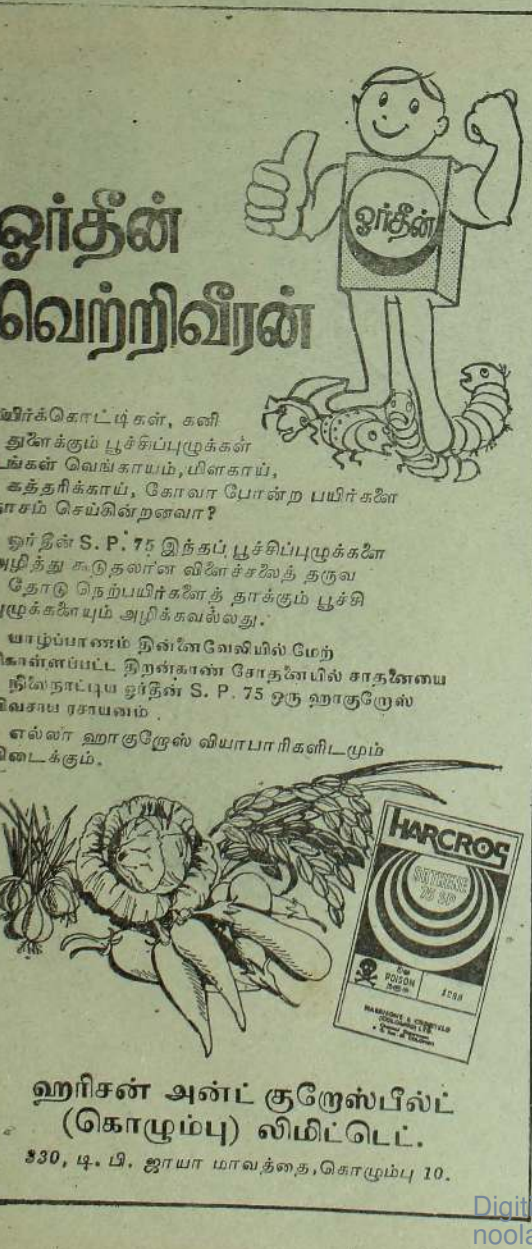 ஓர்தீன்
ஓர்தீன்
வெற்றிவீரன்
யிர்க்கொட்டிகள், கனி
துளைக்கும் பூச்சிப்புழுக்கள்
ங்கள் வெங்காயம், மிளகாய்,
கத்தரிக்காய், கோவா போன்ற பயிர்களை
நாசம் செய்கின்றனவா?
ஓர்தீன் S. P. 75 இந்தப் பூச்சிப்புழுக்களை
அழித்து கூடுதலான விளைச்சலைத் தருவ
தோடு நெற்பயிர்களைத் தாக்கும் பூச்சி
புழுக்களையும் அழிக்கவல்லது.
யாழ்ப்பாணம் தின்னைவேலியில் மேற்
கொள்ளப்பட்ட திறன்காண் சோதனையில் சாதனையை
நிலைநாட்டிய ஓர்தீன் S. P. 75 ஒரு ஹாகுறேஸ்
விவசாய ரசாயனம் .
எல்லா ஹாகுறேஸ் வியாபாரிகளிடமும்
கிடைக்கும்.
HARCROS
ORTHENE
75 SP
POISON
HARRISONS & CROSFIELD
(COLOMBO) LTD.
ஹரிசன் அன்ட் குறேஸ்பீல்ட்
(கொழும்பு) லிமிட்டெட்.
330, டி. பி. ஜாயா மாவத்தை, கொழும்பு 10.
Digit
noola